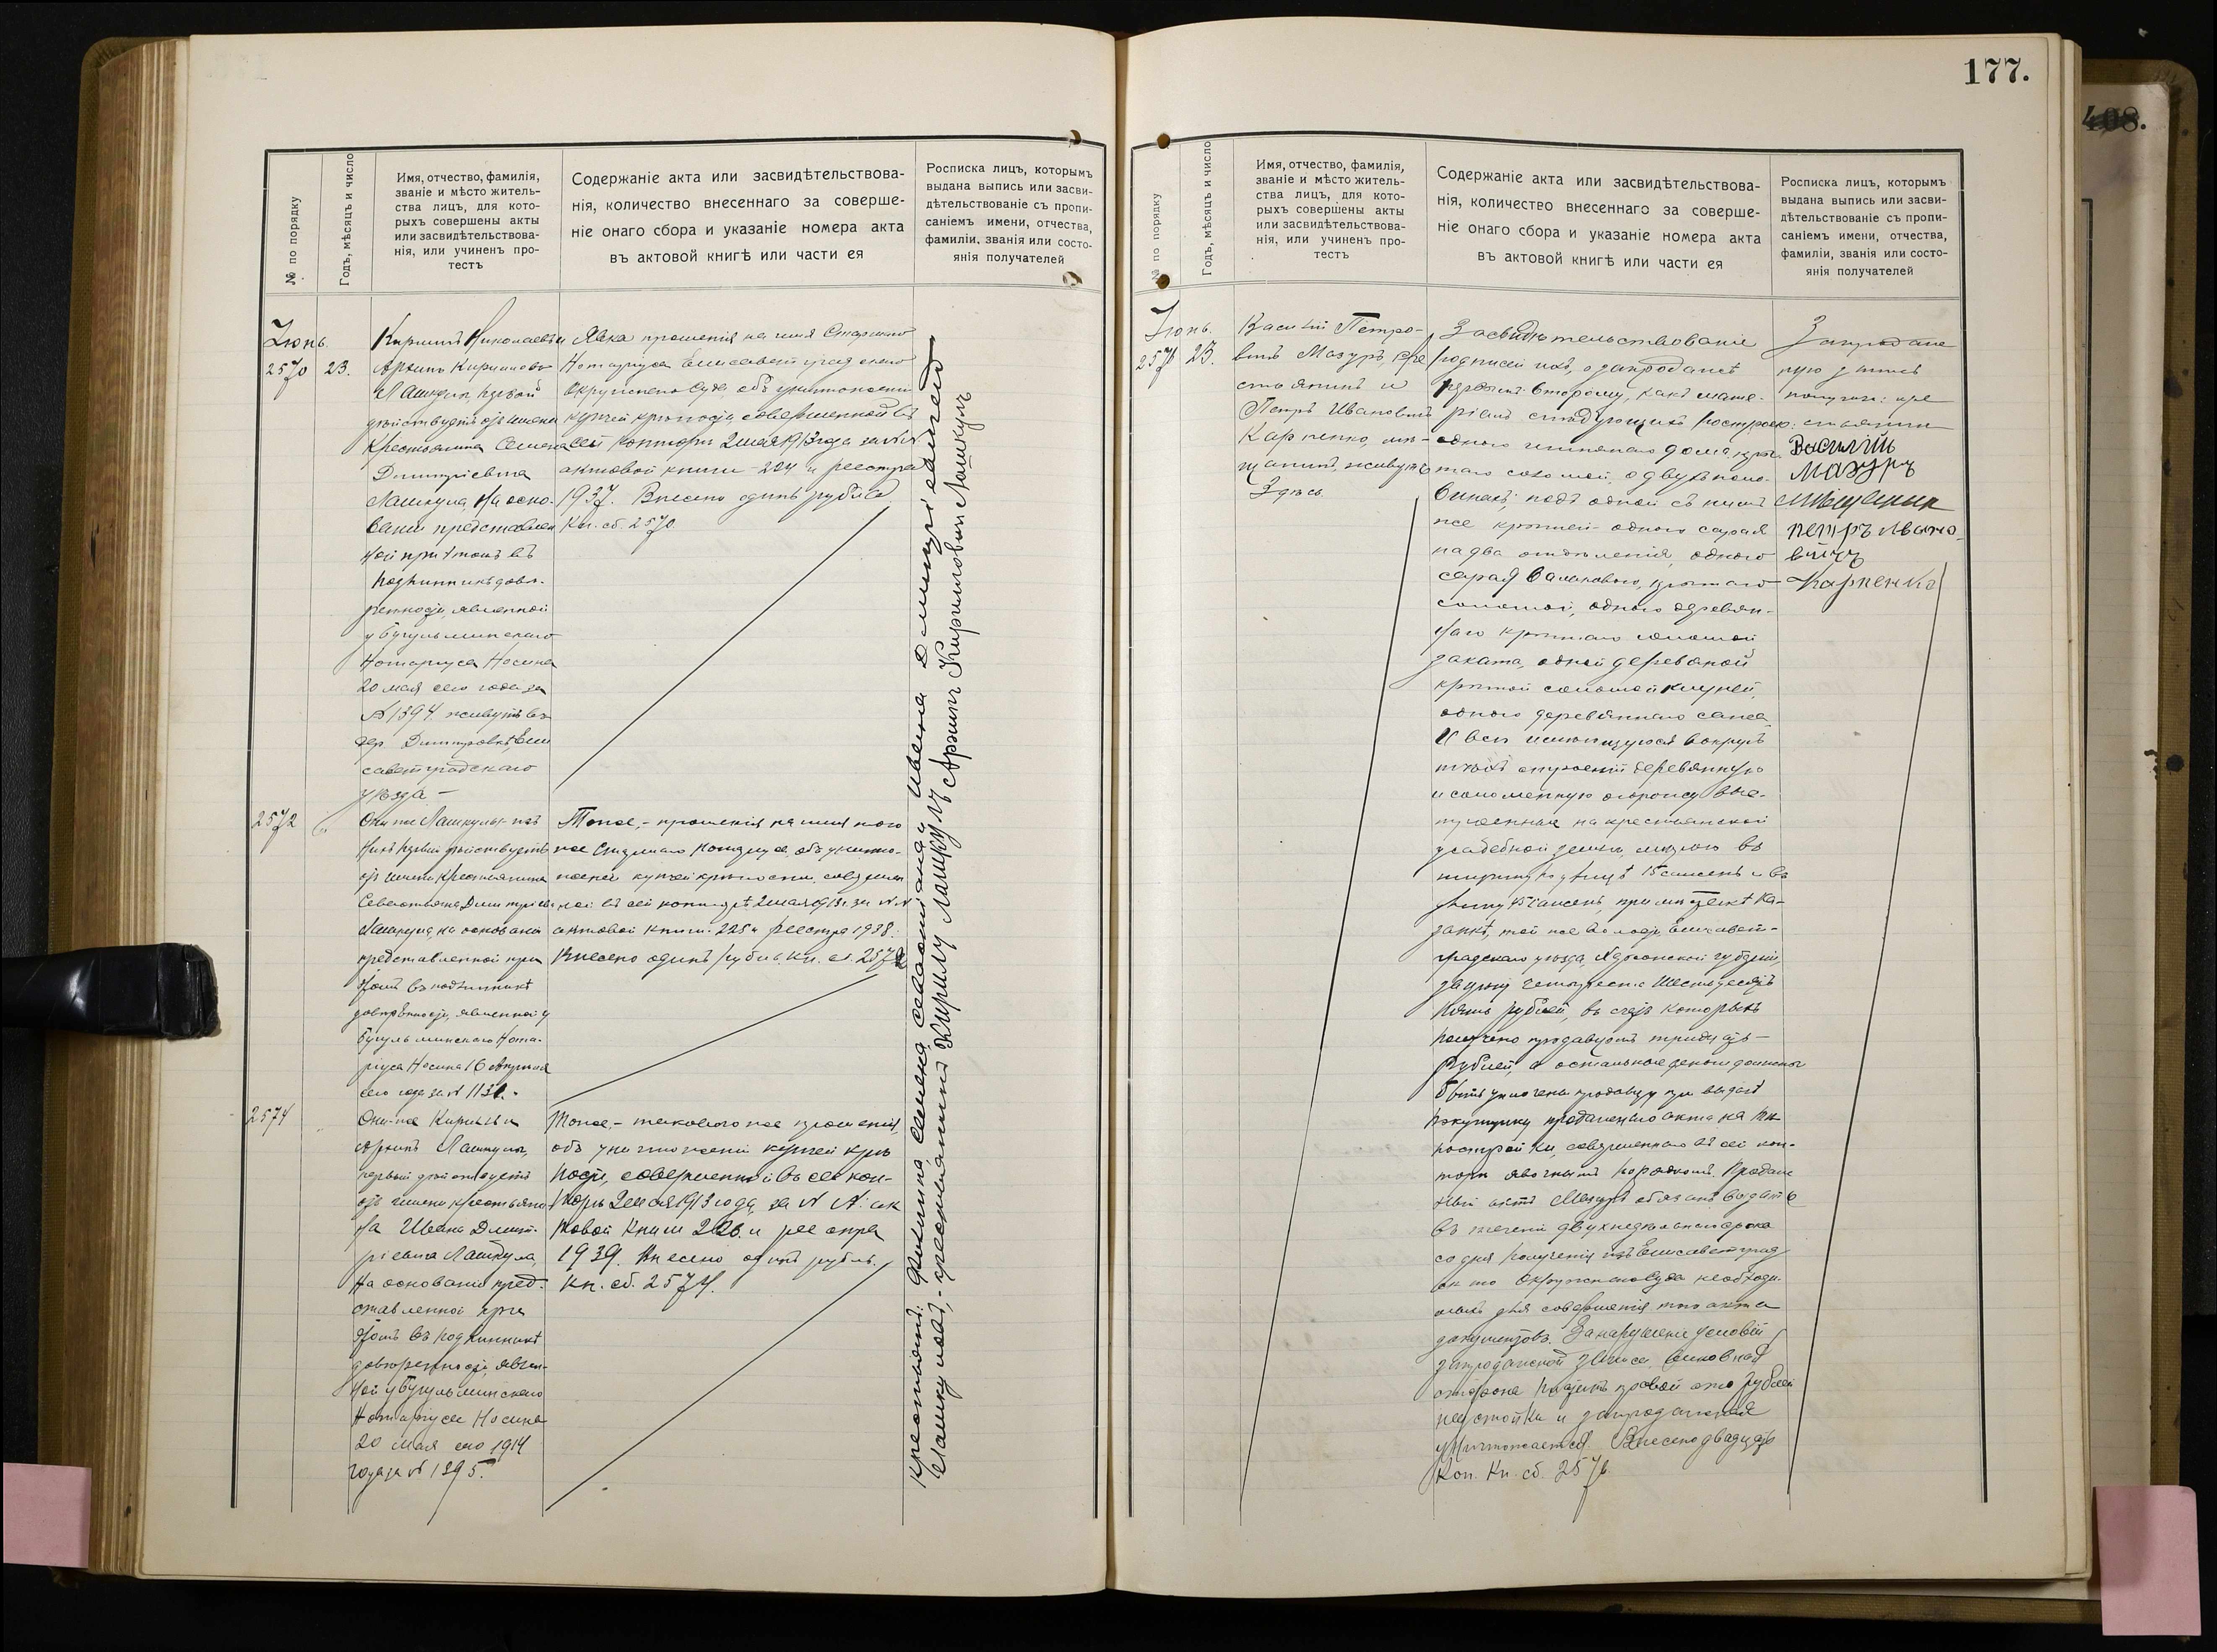 177.
408.
№ по порядку
Годъ, мѣсяцъ и число
Имя, отчество, фамилія,
званіе и мѣсто житель-
ства лицъ, для кото-
рыхъ совершены акты
или засвидѣтельствова-
нія, или учиненъ про-
тестъ
Содержаніе акта или засвидѣтельствова-
нія, количество внесеннаго за соверше-
ніе онаго сбора и указаніе номера акта
въ актовой книгѣ или части ея
Росписка лицъ, которымъ
выдана выпись или засви-
дѣтельствованіе съ пропи-
саніемъ имени, отчества,
фамиліи, званія или состо-
янія получателей
Іюнь.
2570 23.
Кириллъ Николаевъ и
Лашкулъ, первый
дѣйствуетъ отъ имени
Крестьянина Семена
Димитріевича
Лашкула На осно-
ваніи представлен
ной при томъ въ
подлинникѣ довѣ-
ренности, явленной
у Бугульминскаго
Нотаріуса Носина
20 мая сего года за
№ 1394. живутъ въ
дер. Димитровкѣ, Ели
саветградскаго
уѣзда -
Явка прошенія на имя Старшаго
Нотаріуса Елисаветградскаго
Окружнаго Суда объ уничтоженіи
купчей крѣпости, совершенной въ
сей конторѣ 2 мая 1913 года за №№
актовой книги - 224 и реестра
1937. Внесено одинъ рубль
Кн. сб. 2570.
2572 "
Они же Лашкулы - изъ
нихъ первый дѣйствуетъ
отъ имени Крестьянина
Севастьяна Димитріеви
Лашкула, на основаніи
представленной при
этомъ въ подлинникѣ
довѣренности, явленной у
Бугульминскаго Нота-
ріуса Носина 16 Апрѣля
сего года за № 1131.
Тоже, - прошенія на имя того
же Старшаго Нотаріуса, объ уничто-
женіи купчей крѣпости, совершен
ной въ сей конторѣ 2 мая 1913 г. за №№
актовой книги - 225 и реестра 1938.
Внесено одинъ рубль. Кн. сб. 2572
2574
Они-же Кириллъ и
Лашкулы,
первый дѣйствуетъ
отъ имени крестьяни
на Ивана Димит-
ріевича Лашкула,
На основаніи пред-
ставленной при
этомъ въ подлинникѣ
довѣренности, явлен-
ной у Бугульминскаго
Нотаріуса Носина
20 мая сего 1914
года за № 1395.
Тоже, - таковаго же прошенія,
объ уничтоженіи купчей крѣ
пости, совершенной въ сей кон-
торѣ 2 мая 1913 года, за №№ ак
товой книги 226. и реестра
1939. Внесено одинъ рубль.
Кн. сб. 2574.
Кириллу Лашкулъ
Кирилловичъ Лашкулъ
№ по порядку
Годъ, мѣсяцъ и число
Имя, отчество, фамилія,
званіе и мѣсто житель-
ства лицъ, для кото-
рыхъ совершены акты
или засвидѣтельствова-
нія, или учиненъ про-
тестъ
Содержаніе акта или засвидѣтельствова-
нія, количество внесеннаго за соверше-
ніе онаго сбора и указаніе номера акта
въ актовой книгѣ или части ея
Росписка лицъ, которымъ
выдана выпись или засви-
дѣтельствованіе съ пропи-
саніемъ имени, отчества,
фамиліи, званія или состо-
янія получателей
Іюнь.
23.
Василій Петро-
вичъ Мазуръ, кре
стьянинъ и
Петръ Ивановичъ
Карпенко, мѣ-
щанинъ, живутъ
Здѣсь.
Засвидѣтельствованіе
подписей ихъ, о запродажѣ
первымъ второму, какъ мате-
ріалъ слѣдующихъ построек:
одного жилого дома, кры
таго соломой, о двухъ поло-
винахъ; подъ одной съ нимъ
же крышей - одного сарая
на два отдѣленія, одного
сарая крытаго
соломой, одного деревян-
наго крытаго соломой
заката, одной деревяной
крытой соломой клуней,
одного деревяннаго
И всю имѣющуюся вокругъ
этихъ строеній деревянную
и соломенную огорожу вы-
на крестьянской
усадебной землѣ, мѣрою въ
ширину по улицѣ 15 саженъ и въ
длину 45 саженъ, при мѣстечкѣ Ка-
занкѣ, той же волости, Елисавет-
градскаго уѣзда, Херсонской губерніи,
за цѣну четыреста шестьдесятъ
пять рублей, въ счетъ которыхъ
получено продавцомъ тридцать -
рублей, а остальные деньги должны
быть уплочены продавцу при выдачѣ
покупщику продажнаго акта на тѣ
постройки, совершеннаго въ сей кон-
торѣ явочнымъ порядкомъ. Продаж
ный актъ Мазуръ обязанъ выдать
въ теченіи двухнедѣльнаго срока
со дня полученія изъ Елисаветград
ск го Окружнаго Суда необходи-
мыхъ для совершенія того акта
документовъ. За нарушеніе условій
запродажной записи, виновная
сторона платитъ правой сто рублей
неустойки и запродажная
уничтожается. Внесено двадцать
коп. Кн. сб.
Запродаж
ную запись
получили: кре
стьянинъ
Василій
Мазуръ
Мѣщанин
Петръ Ивано-
вичъ
Карпенко